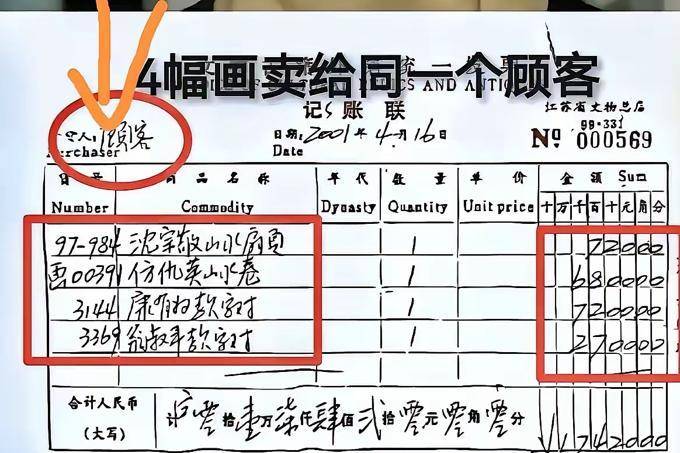 4幅画卖给同一个顾客
ICS AND ANTIQ
记 账 联
江苏省文物总店
99-331
人：顾客
日期：2001年4月16日
Nº 000569
Purchaser
Date
商品名称 年代 数量 单价 金额 Sum
Number Commodity Dynasty Quantity Unit price 十万千百十元角分
97-984 沈宗敬山水扇页 1 72000
画00391 仿仇英山水卷 1 680000
3144 康有为款字对 1 720000
3369 翁叔平款字对 1 270000
合计人民币 零拾壹万柒仟肆佰贰拾零元零角零分
(大写) 1742000